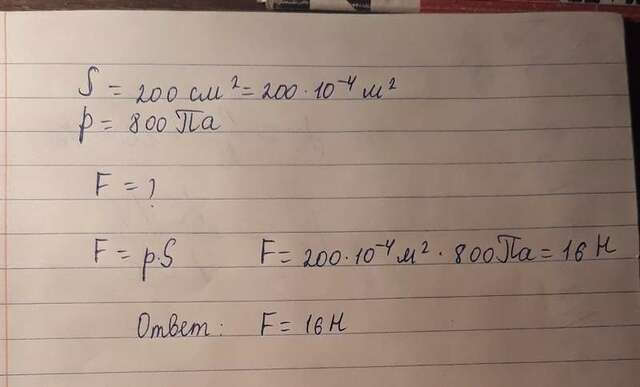 S = 200 см² = 200·10⁻⁴ м²
p = 800 Па
F = ?
F = p·S F = 200·10⁻⁴ м² · 800 Па = 16 Н
Ответ: F = 16 Н